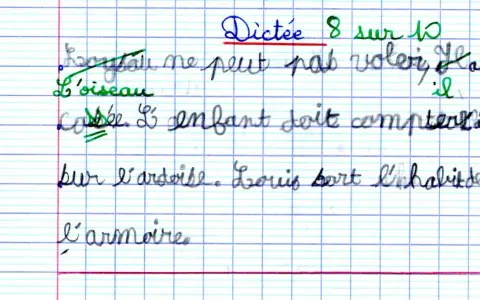 Dictée 8 sur 10
Loyseau ne peut pas voler, Il a
L'oiseau il
cassée. L'enfant doit compter
sur l'ardoise. Louis sort l'habit de
l'armoire.